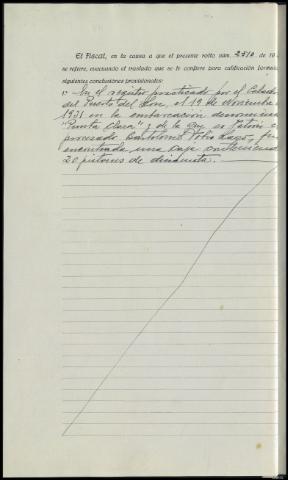 El Fiscal, en la causa a que el presente rollo núm. 2510 de 19
se refiere, evacuando el traslado que se le confiere para calificación formula
siguientes conclusiones provisionales:
1ª En el registro practicado por el
del Puerto del Son, el 19 de Noviembre
1931 en la embarcación denomina
"Punta Clara" y de la que es patrón
procesado Bartolomé Lago, fu
encontrada una caja conteniendo
20 pistones de dinamita.